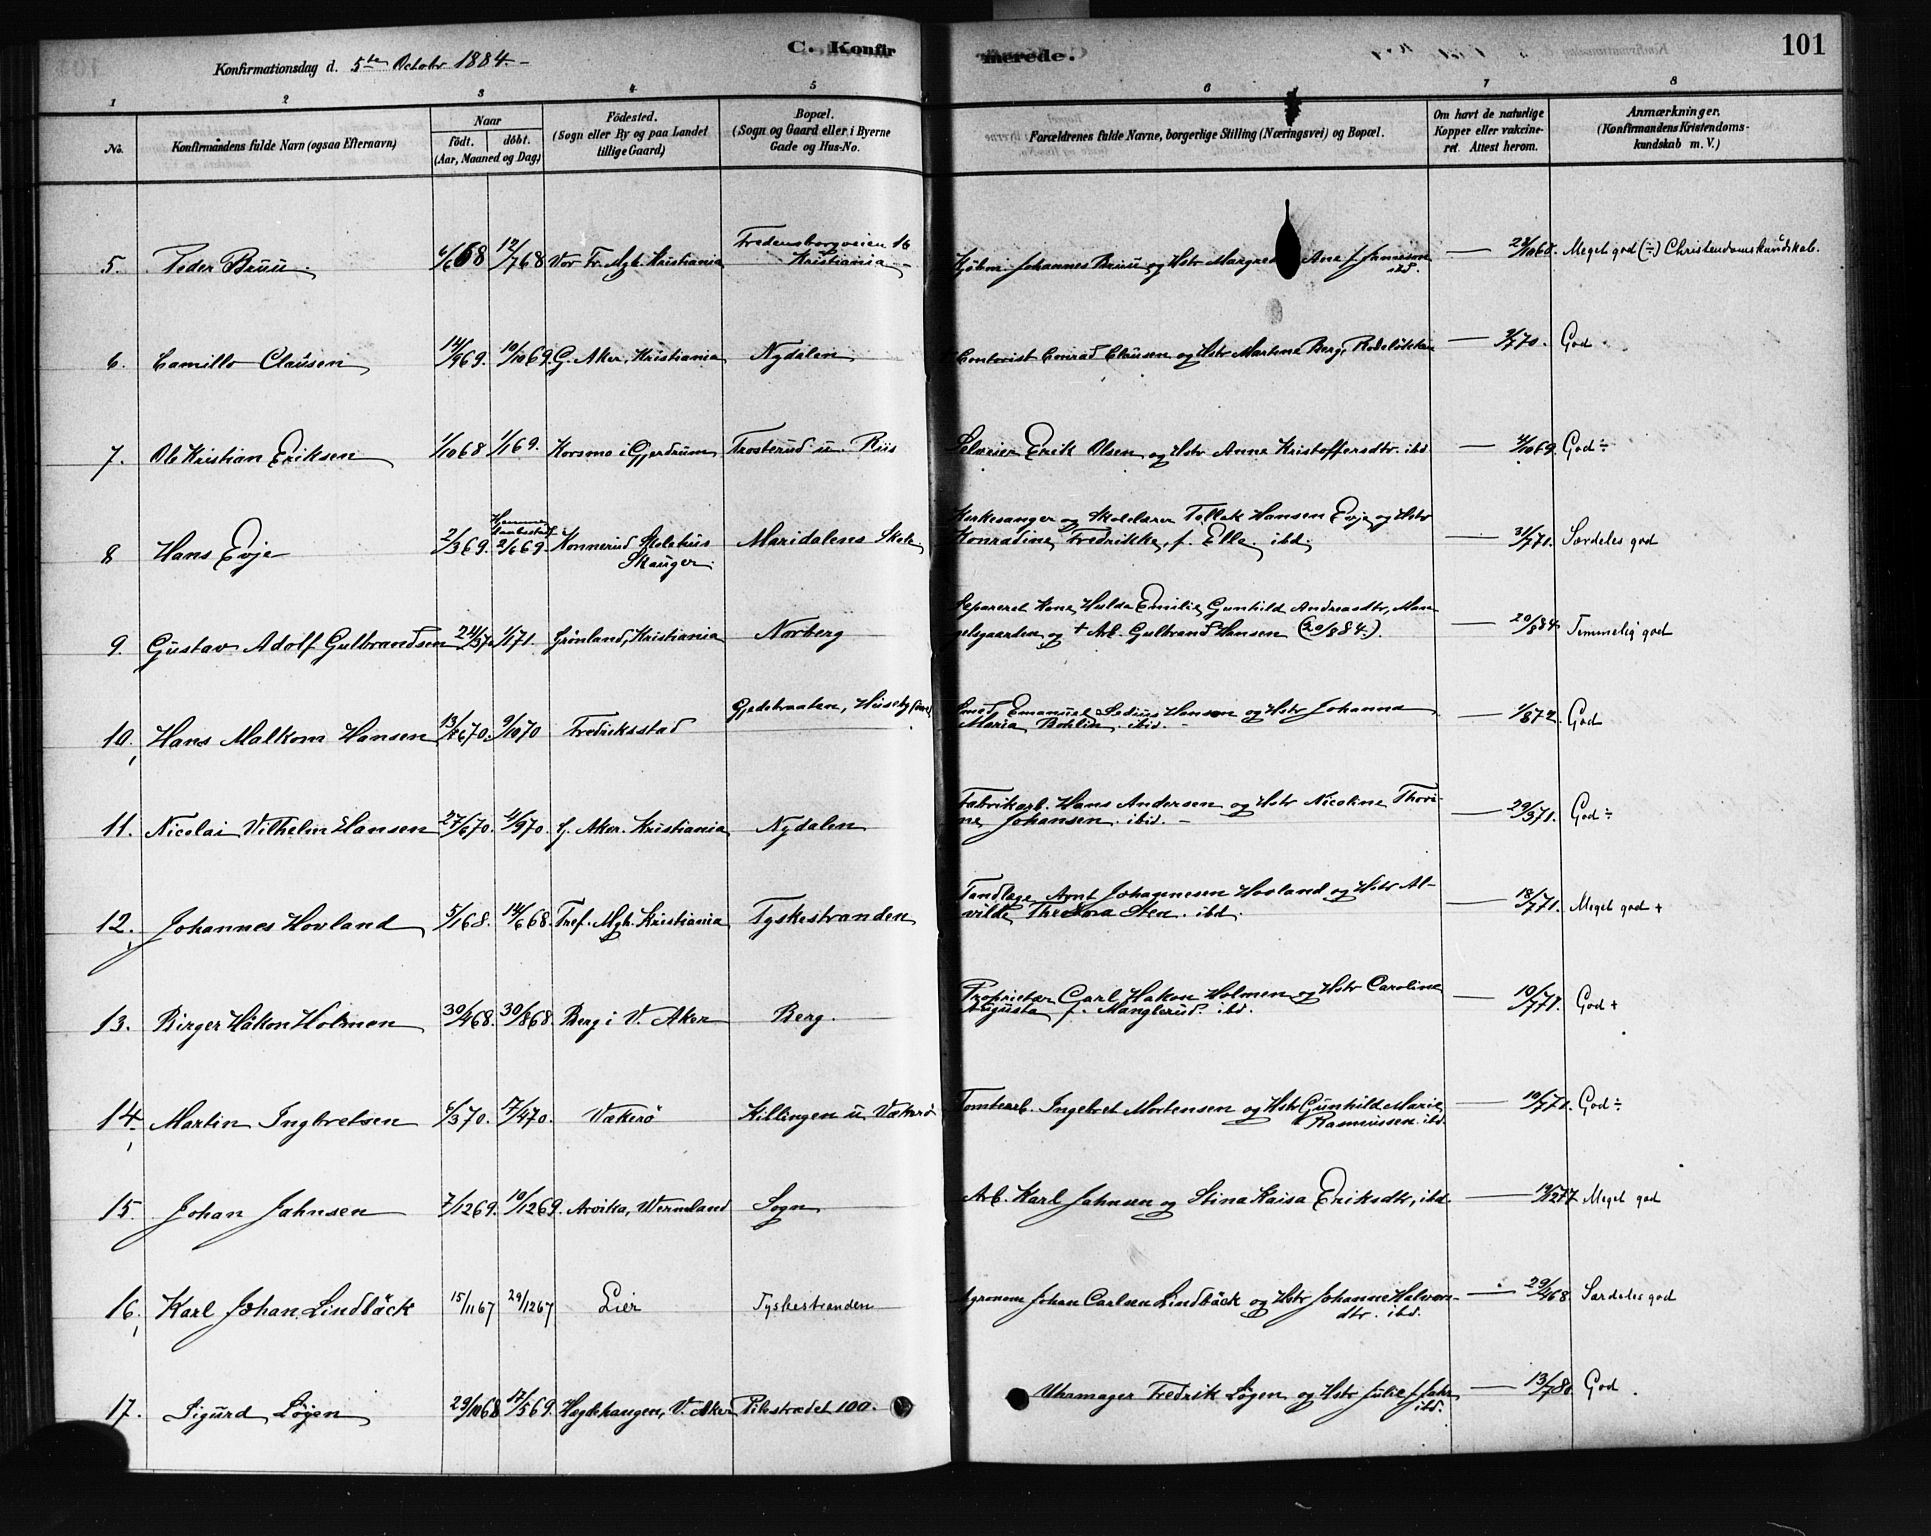 C. Konfir
merede.
101
Konfirmationsdag d. 5te Octobr 1884.
1 2 3 4 5 6 7 8
No. Konfirmandens fulde Navn (ogsaa Efternavn) Naar født. døbt. (Aar, Maaned og Dag) Födested. (Sogn eller By og paa Landet tillige Gaard) Bopæl. (Sogn og Gaard eller i Byerne Gade og Hus-No. Forældrenes fulde Navne, borgerlige Stilling (Næringsvei) og Bopæl. Om havt de naturlige Kopper eller vakcineret. Attest herom. Anmærkninger. (Konfirmandens Kristendomskundskab m. V.)
Fredensborgveien 16
5. Peder Bruu 6/6 68 12/7 68 Vor Fr. Mgh. Kristiania Kristiania Johannes Bruu og Hstr Ane ibd. — Meget god (÷) Christendomskundskab.
6. Camillo Clausen 14/9 69. 10/10 69 G. Aker, Kristiania Nydalen Conrad Clausen og Hstr Martine Berg, Rodeløkken — 70. God
7. Ole Kristian Eriksen 1/10 68 1/1 69. Korsmo i Gjerdrum Trosterud u. Riis Selveier Erik Olsen og Hstr Anne Kristoffersdtr. ibd — 69. God ÷
Kirkesanger og Skolelærer Tellek Hansen Evje og Hstr
8 Hans Evje 2/3 69. 2/6 69. Konnerud Skolehus Maridalens Skole Konradine Fredrikke, f. Elle. ibd. — 31/7 71. Særdeles god
Skauger.
Separeret Kone Hulda Emilie Gunhild Andreasdtr, Man
9. Gustav Adolf Gulbrandsen 1/1 71. Grönland, Kristiania Norberg gelsgaarden og + Arb. Gulbrand Hansen (20/8 84.). — 20/8 84. Temmelig god
10. Hans Malkom Hansen 13/6 70. 9/10 70 Fredriksstad Smed Emanuel Hansen og Hstr Johanna — 1/8 72. God
Maria Bohlin. ibid.
Fabrikarb. Hans Andersen og Hstr Nicoline Thori-
11. Nicolai Vilhelm Hansen 27/6 70. 4/9 70. G. Aker. Kristiania Nydalen ne Johansen. ibid. — 29/3 71. God ÷
Tandlæge Arnt Johannesen Hovland og Hstr Al-
12. Johannes Hovland 5/1 68. 14/6 68. Tref. Mgh. Kristiania Tyskestranden vilde Theodora Sten. ibd. — 18/7 71. Meget god +
Proprietær Carl Hakon Holmen og Hstr Caroline
13. Birger Håkon Holmen 30/4 68. 30/8 68. Berg i V. Aker Berg. Augusta f. Manglerud. ibd. — 10/7 71. God +
14. Martin Ingbretsen 6/3 70. 17/4 70. Vækerö Killingen u. Vækerö Tomtearb. Ingebret Mortensen og Hstr Gunhild Marie — 10/7 71. God ÷
Rasmussen. ibd.
15. Johan Jahnsen 7/12 69. 10/12 69. Arvika, Wermland Sogn Arb. Karl Jahnsen og Stina Kaisa Eriksdtr, ibd — 77 Meget god
16. Karl Johan Lindbäck 15/11 67 29/12 67 Lier Tyskestranden Agronom Johan Carlsen Lindbäck og Hstr Johanne Halvors- — 29/4 68. Særdeles god
dtr. ibd.
17. Sigurd Lögen 29/10 68 17/5 69. Hægdehaugen, V. Aker Pilestrædet 100. Uhrmager Fredrik Lögen og Hstr Julie f. — 13/7 80. God.
ibd.